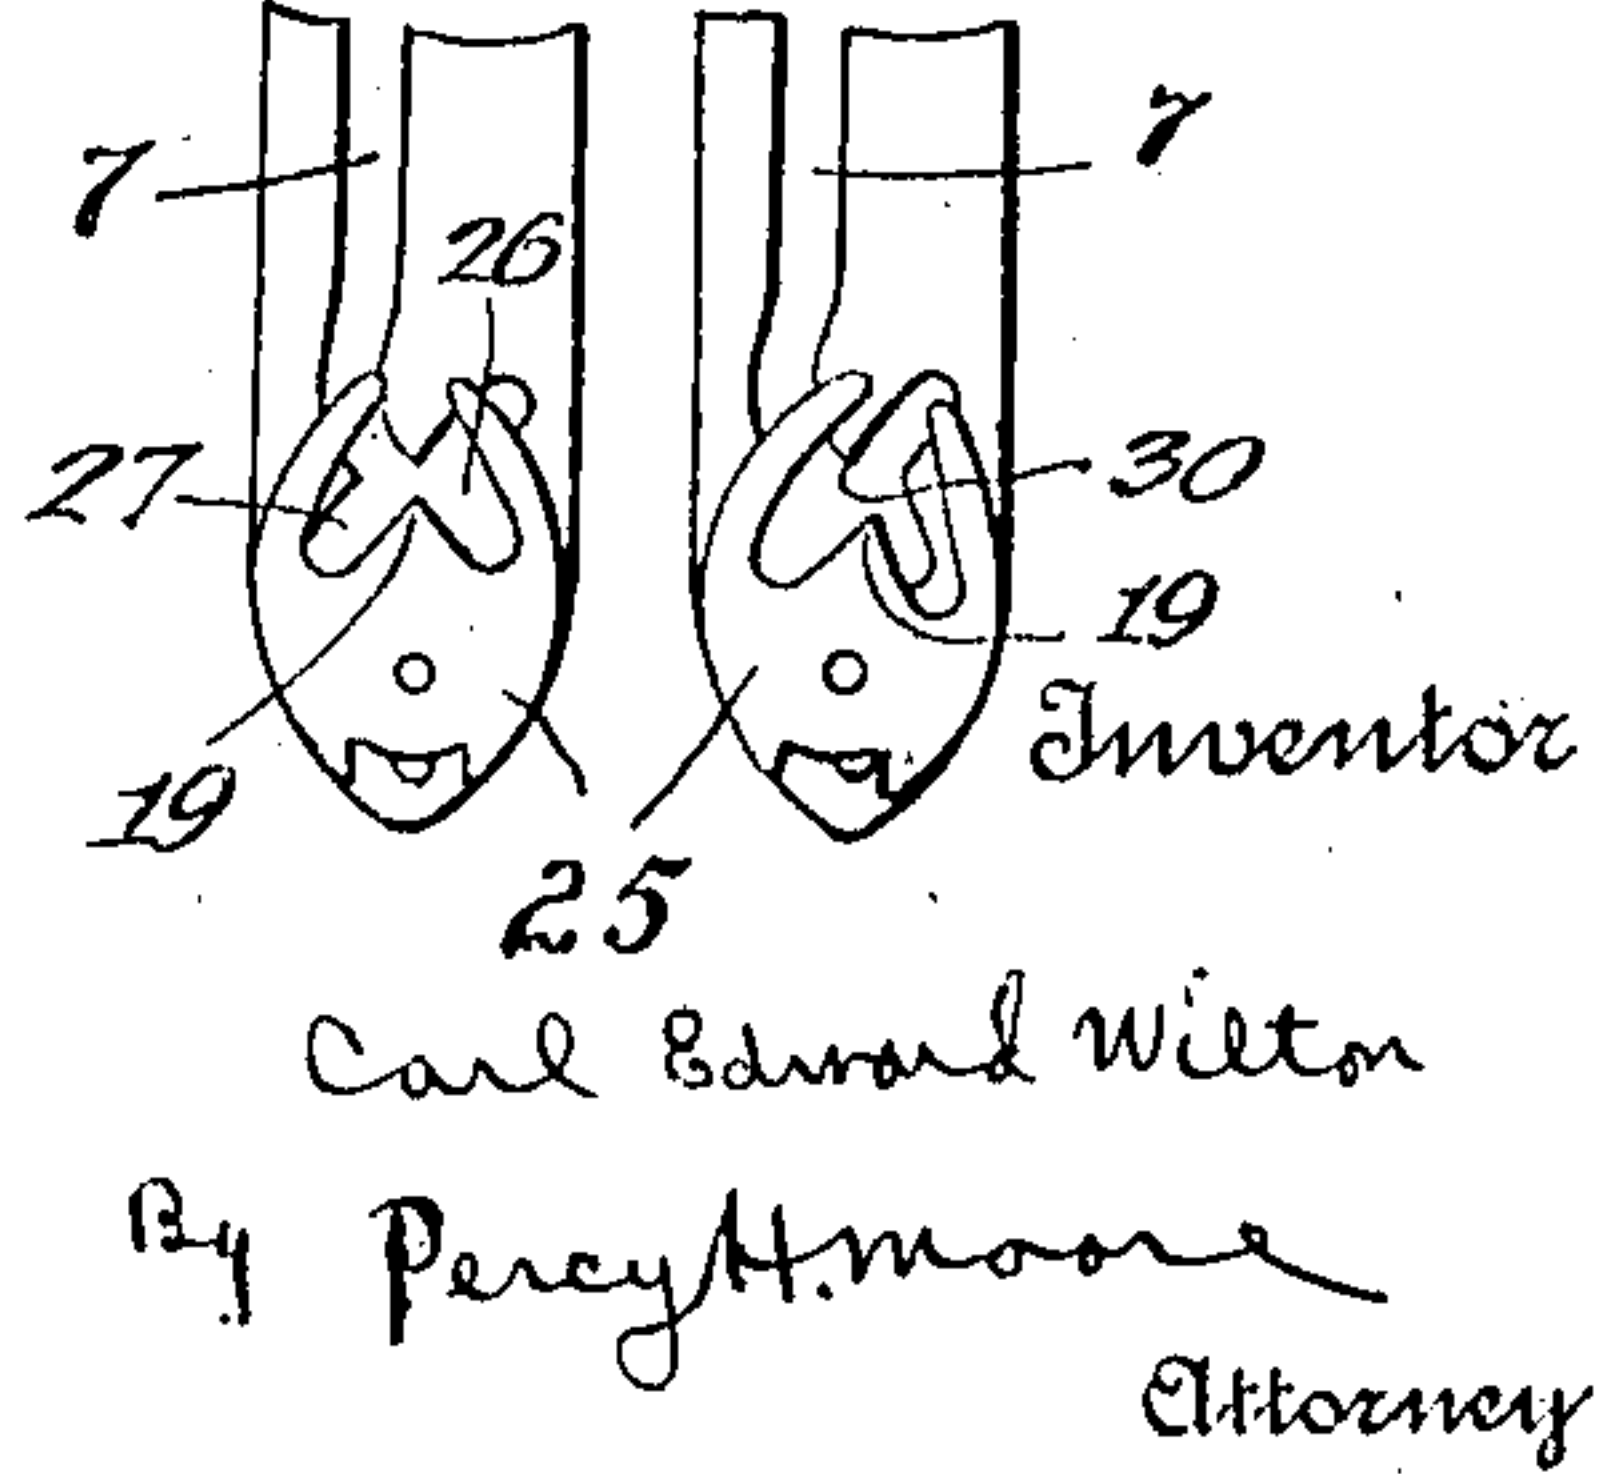 7 7
26
27 30
19
Inventor
19
25
Carl Edward Wilton
By Percy H. Moore
Attorney